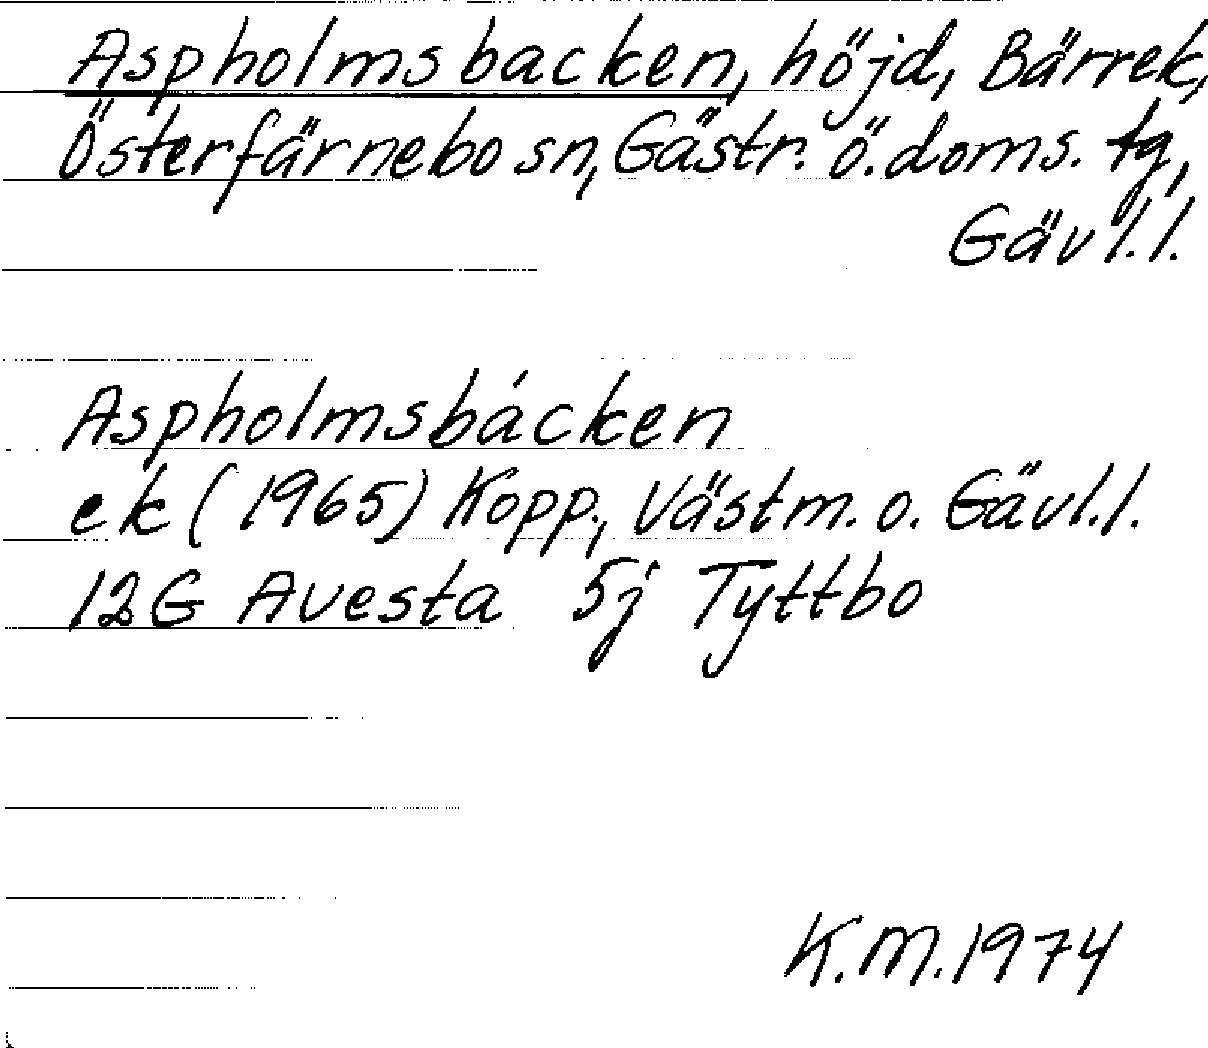 Aspholmsbacken, höjd, Bärrek,
Österfärnebo sn, Gästr. ö. doms. tg,
Gävl.l.
Aspholmsbácken
ek (1965) Kopp., Västm. o. Gävl.l.
12G Avesta 5j Tyttbo
K.M. 1974